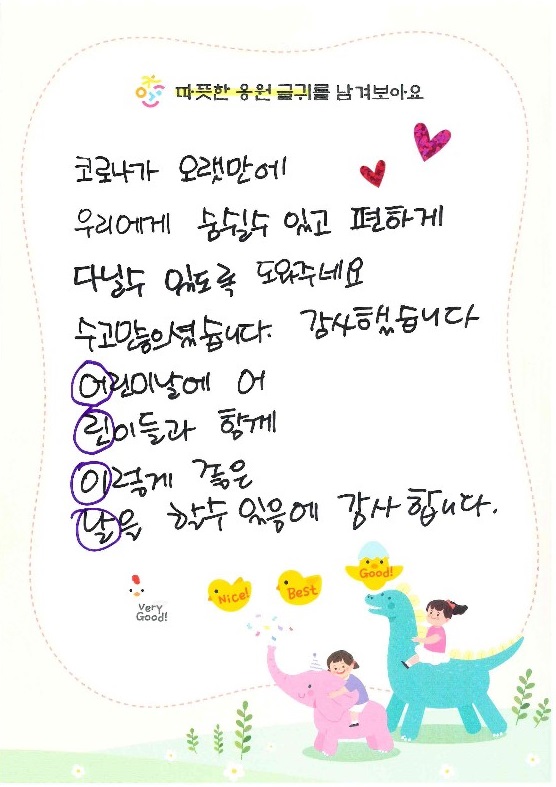 따뜻한 응원 글귀를 남겨보아요
코로나가 오랫만에
우리에게 숨쉴수 있고 편하게
다닐수 있도록 도와주네요
수고많으셨습니다. 감사했습니다
어린이날에 어
린이들과 함께
이렇게 좋은
날을 할수 있음에 감사합니다.
Very
Good!
Nice!
Best
Good!